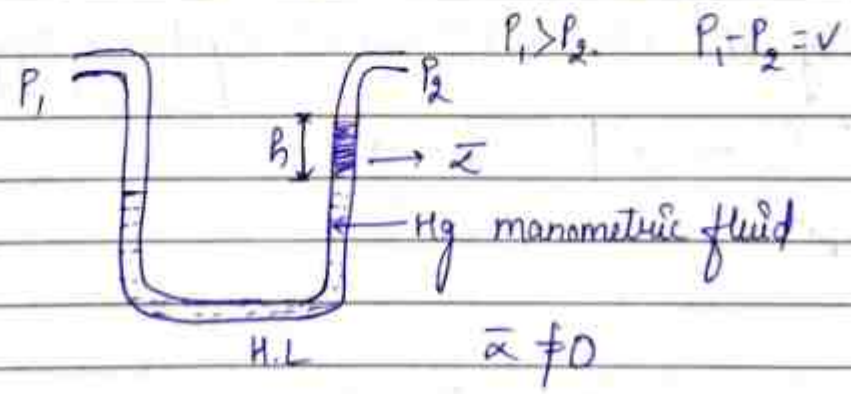 P₁>P₂. P₁-P₂=v
P₁
P₂
h
Hg manometric fluid
H.L